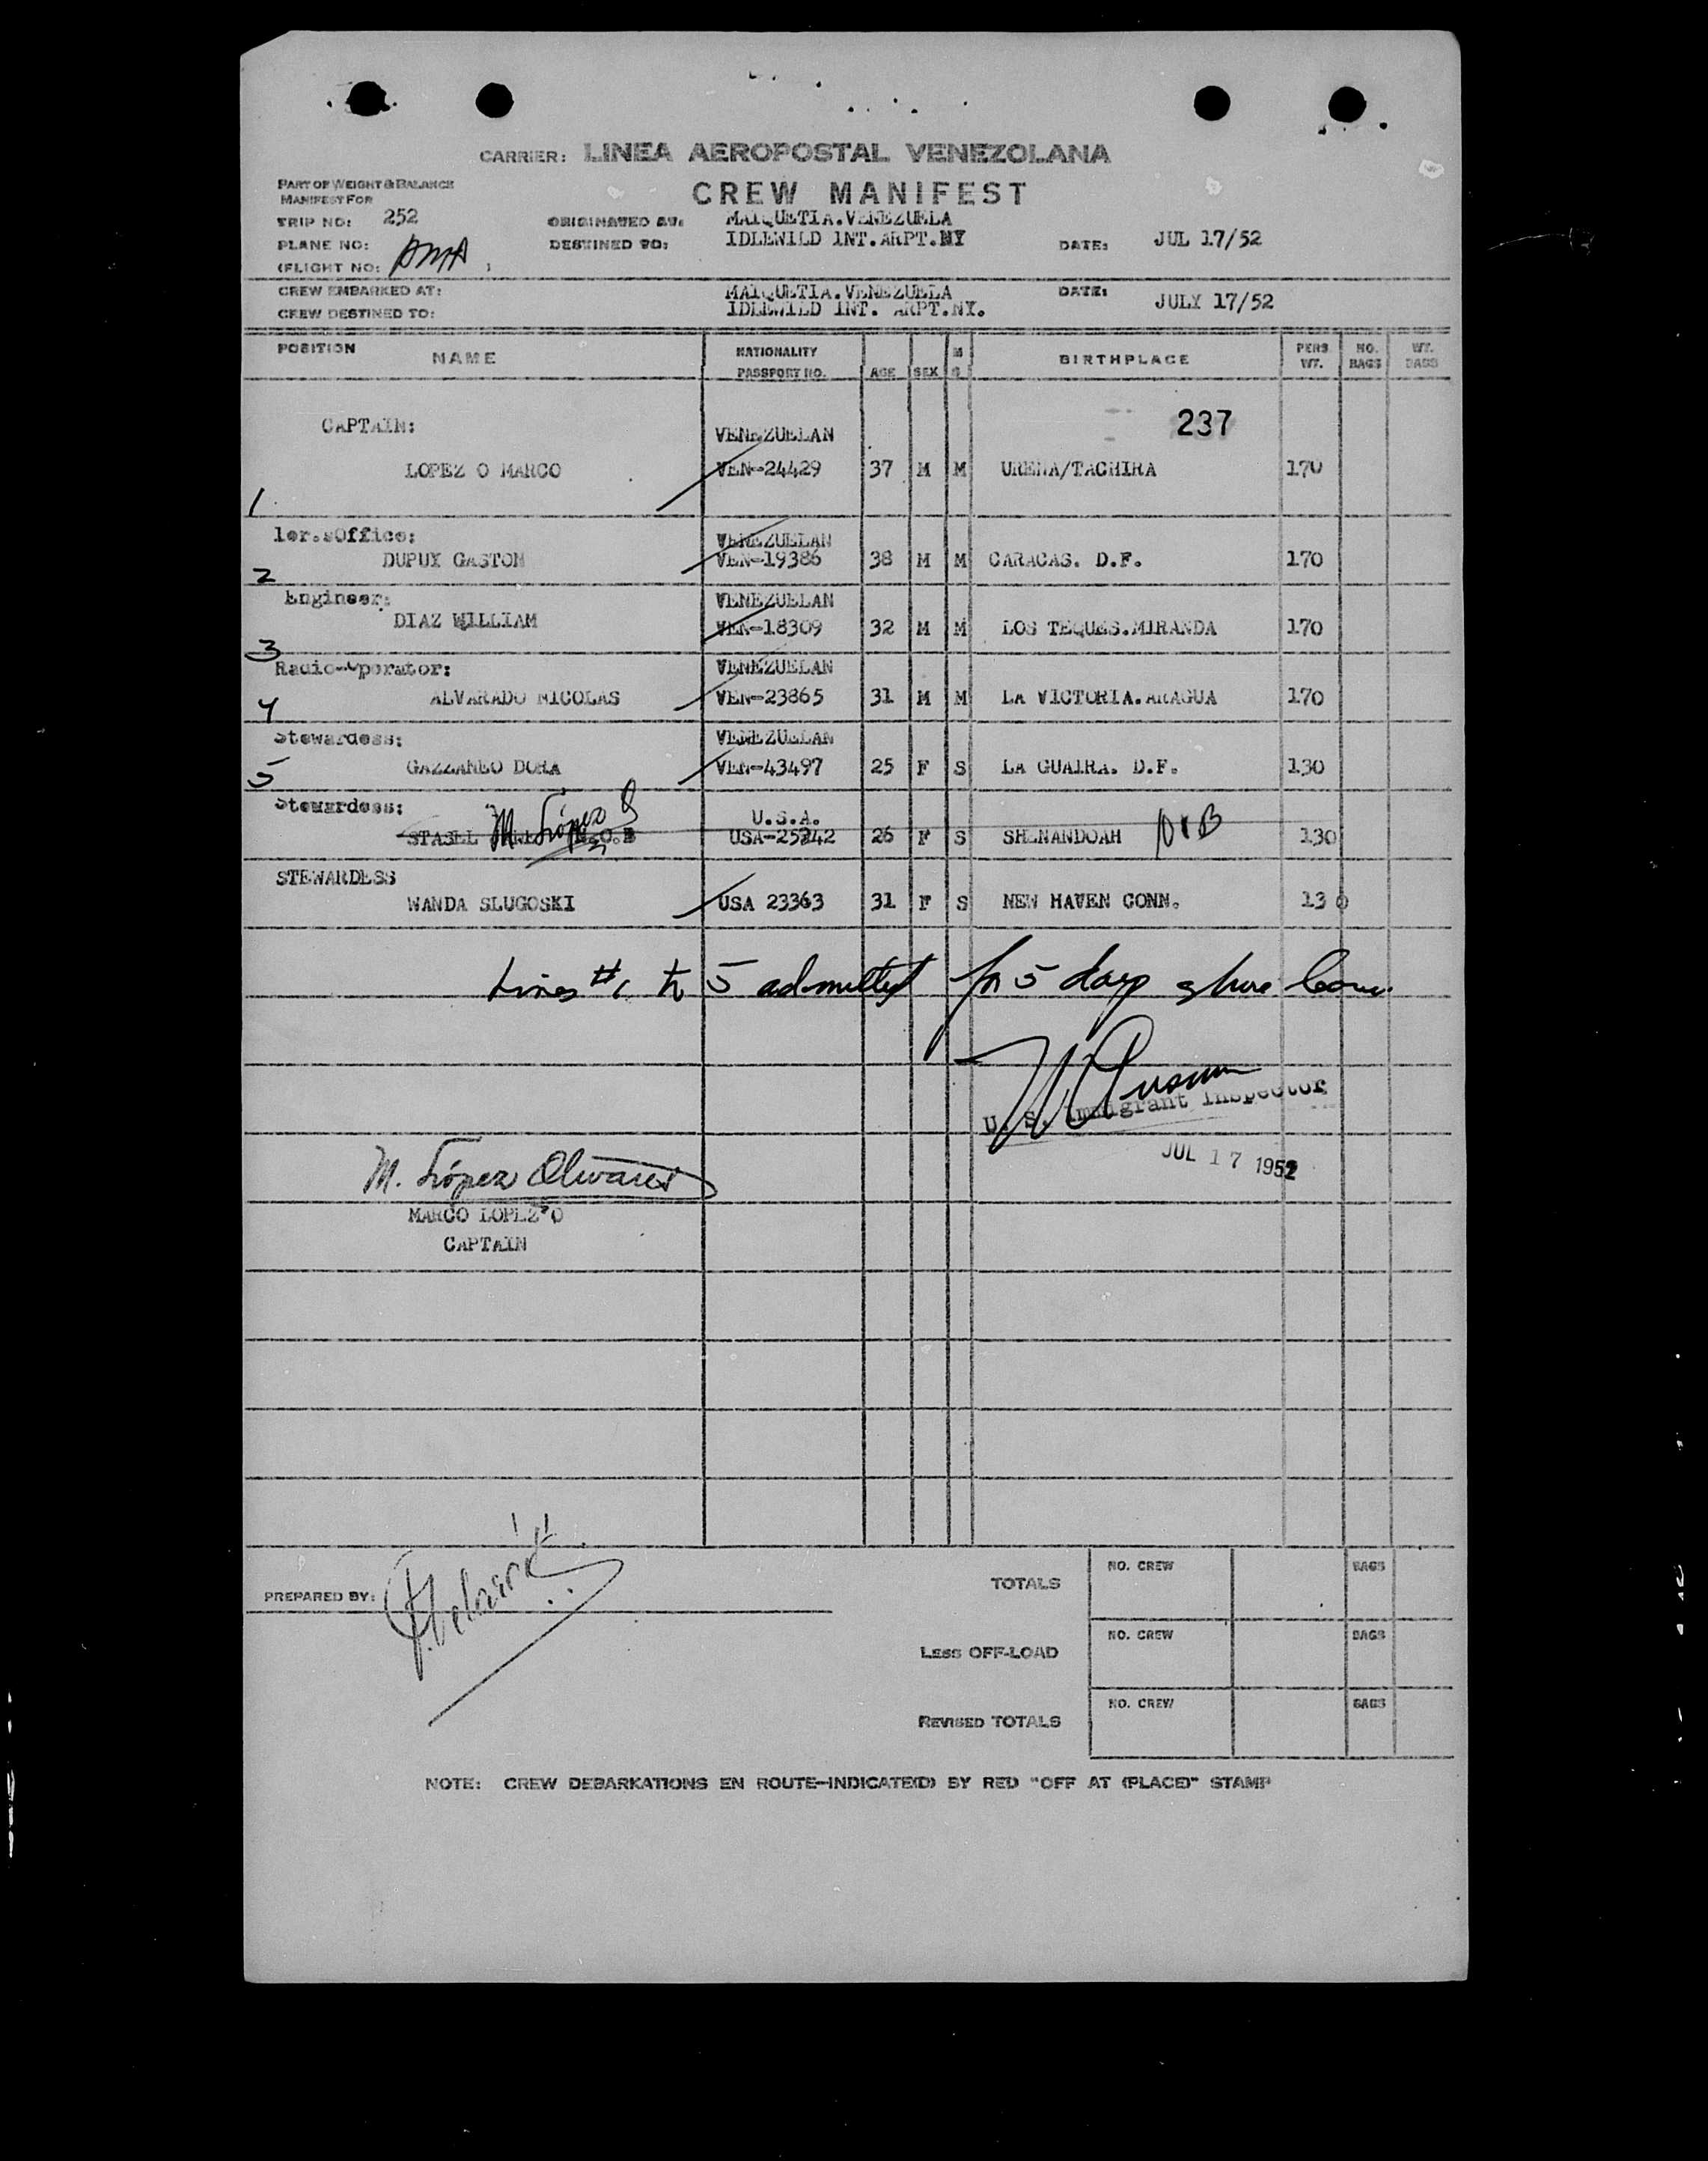 CARRIER: LINEA AEROPOSTAL VENEZOLANA
CREW MANIFEST
PART OF WEIGHT & BALANCE
MANIFEST FOR
TRIP NO: 252
ORIGINATED AT: MAIQUETIA.VENEZUELA
PLANE NO:
DESTINED TO: IDLEWILD INT.ARPT.NY
DATE: JUL 17/52
(FLIGHT NO: )
CREW EMBARKED AT: MAIQUETIA.VENEZUELA
DATE: JULY 17/52
CREW DESTINED TO: IDLEWILD INT. ARPT.NY.
POSITION NAME NATIONALITY PASSPORT NO. AGE SEX M S BIRTHPLACE PERS. WT. NO. BAGS WT. BAGS
237
CAPTAIN: VENEZUELAN
LOPEZ O MARCO VEN-24429 37 M M URENA/TACHIRA 170
1
1er.sOffice: VENEZUELAN
DUPUY GASTON VEN-19386 38 M M CARACAS. D.F. 170
2
Engineer: VENEZUELAN
DIAZ WILLIAM VEN-18309 32 M M LOS TEQUES.MIRANDA 170
3
Radio-Operator: VENEZUELAN
ALVARADO NICOLAS VEN-23865 31 M M LA VICTORIA.ARAGUA 170
4
Stewardess: VENEZUELAN
GAZZANEO DORA VEN-43497 25 F S LA GUAIRA. D.F. 130
5
Stewardess: M. López U.S.A.
26 F S SHENANDOAH 130
STEWARDESS
WANDA SLUGOSKI USA 23363 31 F S NEW HAVEN CONN. 130
Lines #1 to 5 admitted for 5 days shore leave
U. S. Immigrant Inspector
JUL 17 1952
M. López Olivares
MARCO LOPEZ O
CAPTAIN
PREPARED BY:
TOTALS NO. CREW BAGS
LESS OFF-LOAD NO. CREW BAGS
REVISED TOTALS NO. CREW BAGS
NOTE: CREW DEBARKATIONS EN ROUTE-INDICATE(D) BY RED "OFF AT (PLACE)" STAMP